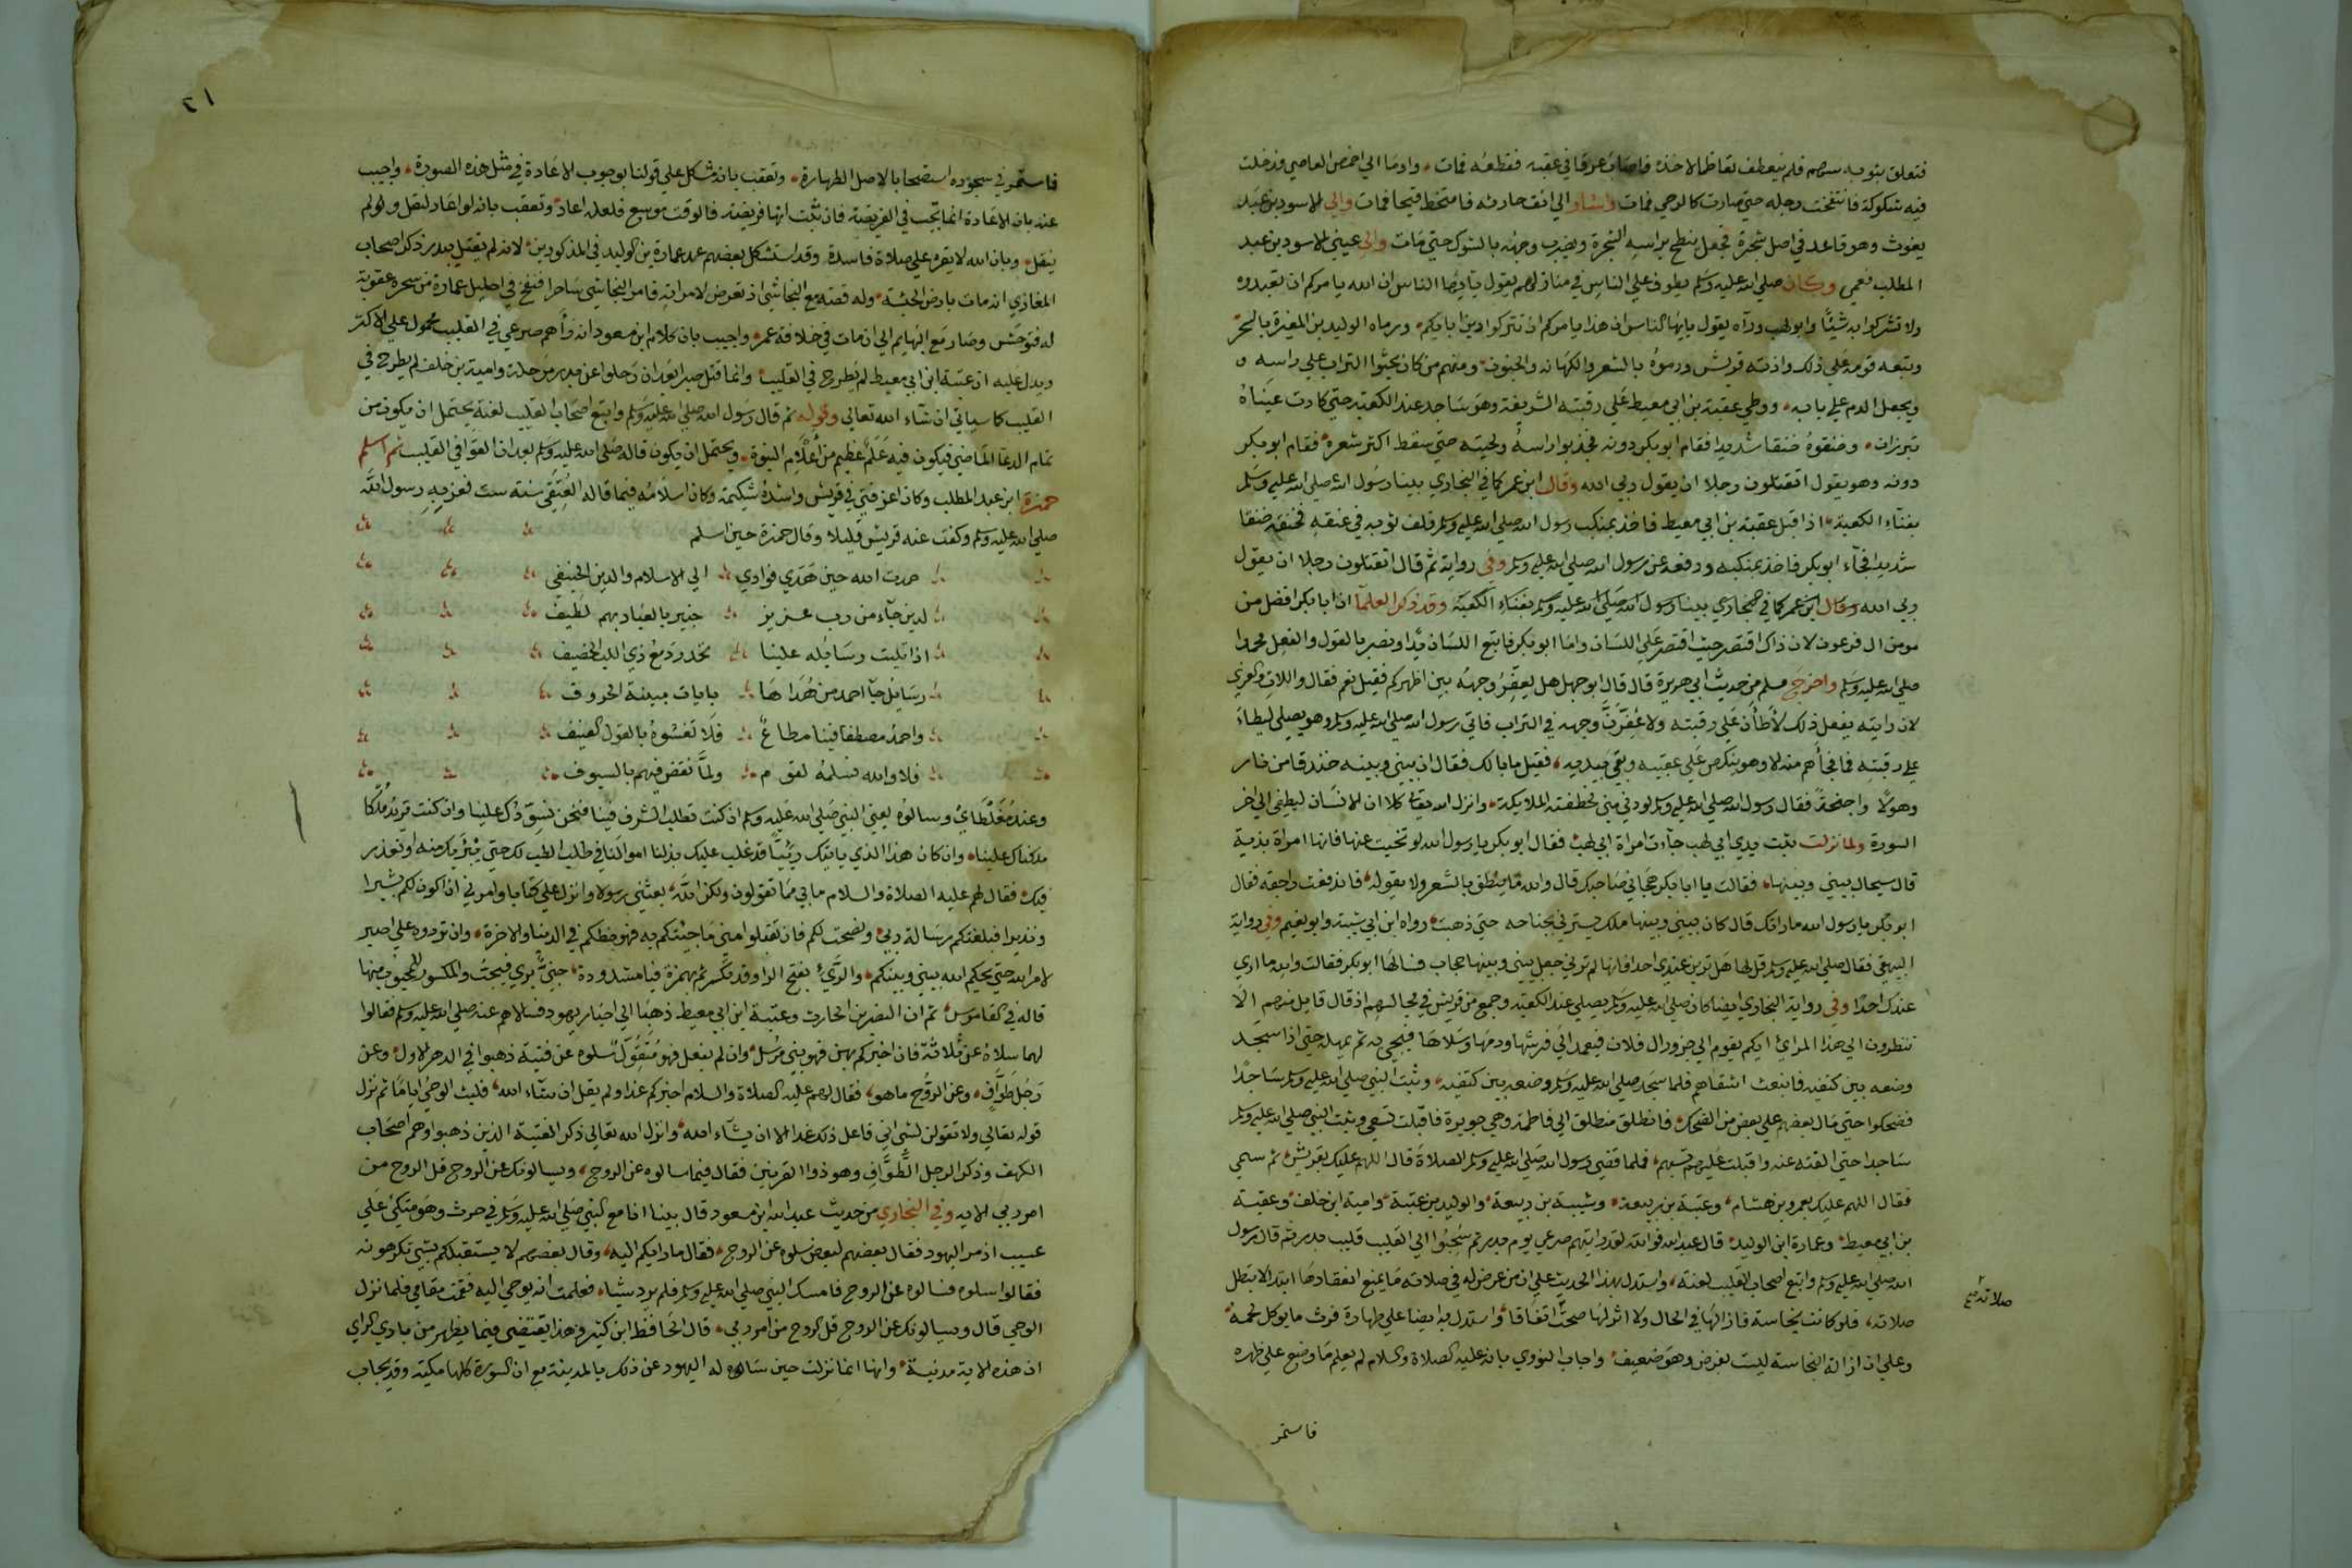 فتعلق بثوبه سهم فلم ينعطف تعاظما لاخذه فاصاب عرقا في عقبه فقطعه فمات وادما الي اخمص العاصي فدخلت
فيه شكوكة فانتفخت رجله حتي صارت كالرحي فمات واشار الي انف حارثه فامتخط قيحا فمات والي الاسود بن عبد
يغوث وهو قاعد في اصل شجرة فجعل ينطح براسه الشجرة ويضرب وجهه بالشوك حتي مات والي عيني الاسود بن عبد
المطلب فعمي وكان صلي الله عليه وسلم يطوف علي الناس في منازلهم يقول يا ايها الناس ان الله يامركم ان تعبدوه
ولا تشركوا به شيئا وابو لهب وراه يقول يا ايها الناس ان هذا يامركم ان تتركوا دين ابايكم ورماه الوليد بن المغيرة بالسحر
وتبعه قومه علي ذلك واذته قريش ورموه بالشعر والكهانه والجنون ومنهم من كان يحثوا التراب علي راسه و
ويجعل الدم علي بابه ووطي عقبة بن ابي معيط علي رقبته الشريفة وهو ساجد عند الكعبة حتي كادت عيناه
تبرزان وخنقوه خنقا شديدا فقام ابو بكر دونه فجذبوا راسه ولحيته حتي سقط اكثر شعره فقام ابو بكر
دونه وهو يقول اتقتلون رجلا ان يقول ربي الله وقال ابن عمر كما في البخاري بينا رسول الله صلي الله عليه وسلم
بفناء الكعبة اذا قبل عقبة بن ابي معيط فاخذ بمنكب رسول الله صلي الله عليه وسلم فلف ثوبه في عنقه فخنقه خنقا
شديدا فجاء ابو بكر فاخذ بمنكبه ودفعه عن رسول الله صلي الله عليه وسلم وفي رواية ثم قال اتقتلون رجلا ان يقول
ربي الله وقال ابن عمر كما في البخاري بينا رسول الله صلي الله عليه وسلم بفناء الكعبة وقد ذكر العلما ان ابا بكر افضل من
مومن ال فرعون لان ذاك اقتصر حيث اقتصر علي اللسان واما ابو بكر فاتبع اللسان يدا ونصر بالقول والفعل محمدا
صلي الله عليه وسلم واخرج مسلم من حديث ابي هريرة قال قال ابو جهل هل يعفر وجهه بين اظهركم فقيل نعم فقال واللات والعزي
لان رايته يفعل ذلك لاطان علي رقبته ولاعفرن وجهه في التراب فاتي رسول الله صلي الله عليه وسلم وهو يصلي ليطاء
علي رقبته فما فجأهم منه الا وهو ينكص علي عقبيه ويتقي بيديه فقيل مابالك فقال ان بيني وبينه خندقا من نار
وهولا واجنحة فقال رسول الله صلي الله عليه وسلم لو دني مني لخطفته الملايكة وانزل الله تعالي كلا ان الانسان ليطغي الي اخر
السورة ولما نزلت تبت يدي ابي لهب جاءت امراة ابي لهب فقال ابو بكر يا رسول الله لو تنحيت عنها فانها امراة بذية
قال سيحال بيني وبينها فقالت يا ابا بكر هجاني صاحبك قال والله ما ينطق بالشعر ولا يقوله فاندفعت راجعة فقال
ابو بكر يا رسول الله ما راتك قال كان بيني وبينها ملك يسترني بجناحه حتي ذهبت رواه ابن ابي شيبة وابو نعيم وفي رواية
البيهقي فقال صلي الله عليه وسلم قل لها هل ترين عندي احدا فانها لم ترني جعل بيني وبينها حجاب فسالها ابو بكر فقالت والله ما اري
عندك احدا وفي رواية البخاري ايضا كان صلي الله عليه وسلم يصلي عند الكعبة وجمع من قريش في مجالسهم اذ قال قايل منهم الا
تنظرون الي هذا المراي ايكم يقوم الي جزور ال فلان فيعمد الي فرثها ودمها وسلاها فيجي به ثم يمهله حتي اذا سجد
وضعه بين كتفيه فانبعث اشقاهم فلما سجد صلي الله عليه وسلم وضعه بين كتفيه وثبت النبي صلي الله عليه وسلم ساجدا
فضحكوا حتي مال بعضهم علي بعض من الضحك فانطلق منطلق الي فاطمة وهي جويرة فاقبلت تسعي وثبت النبي صلي الله عليه وسلم
ساجدا حتي القته عنه واقبلت عليهم تسبهم فلما قضي رسول الله صلي الله عليه وسلم الصلاة قال اللهم عليك بقريش ثم سمي
فقال اللهم عليك بعمرو بن هشام وعتبة بن ربيعة وشيبة بن ربيعة والوليد بن عتبة وامية ابن خلف وعقبة
بن ابي معيط وعمارة ابن الوليد قال عبد الله فوالله لقد رايتهم صرعي يوم بدر ثم سحبوا الي القليب قليب بدر ثم قال رسول
الله صلي الله عليه وسلم واتبع اصحاب القليب لعنة واستدل بهذا الحديث علي ان من عرض له في صلاته ما يمنع انعقادها ابتدا لا تبطل
صلاته فلو كانت نجاسة فازالها في الحال ولا اثر لها صحت اتفاقا واستدل به ايضا علي طهارة فرث ما يوكل لحمه
وعلي ان ازالة النجاسة ليست بفرض وهو ضعيف واجاب النووي بانه عليه الصلاة والسلام لم يعلم ما وضع علي ظهره
فاستمر
صلاته صح
٢١
فاستمر في سجوده استصحابا لاصل الطهارة وتعقب بانه مشكل علي قولنا بوجوب الاعادة في مثل هذه الصورة واجيب
عنه بان الاعادة انما تجب في الفريضة فان ثبت انها فريضة فالوقت موسع فلعله اعاد وتعقب بانه لو اعاد لنقل ولو لم
ينقل وبان الله لا يقره علي صلاة فاسدة وقد استشكل بعضهم عد عمارة بن الوليد في المذكورين لانه لم يقتل ببدر ذكر اصحاب
المغازي انه مات بارض الحبشة وله قصة مع النجاشي اذ تعرض لامراته فامر النجاشي ساحرا فنفخ في احليل عمارة من سحره عقوبة
له فتوحش وصار مع البهايم الي ان مات في خلافة عمر واجيب بان كلام ابن مسعود انه راهم صرعي في القليب محمول علي الاكثر
ويدل عليه ان عقبة ابن ابي معيط لم يطرح في القليب وانما قتل صبرا بعد ان رحلوا عن بدر مرحلة وامية بن خلف لم يطرح في
القليب كما سياتي ان شاء الله تعالي وقوله ثم قال رسول الله صلي الله عليه وسلم واتبع اصحاب القليب لعنة يحتمل ان يكون من
تمام الدعا الماضي فيكون فيه علم عظيم من اعلام النبوة ويحتمل ان يكون قاله صلي الله عليه وسلم بعد ان القوا في القليب ثم اسلم
حمزة ابن عبد المطلب وكان اعز فتي في قريش واشده شكيمة وكان اسلامه فيما قاله العتقي سنة ست فعز به رسول الله
صلي الله عليه وسلم وكفت عنه قريش قليلا وقال حمزة حين اسلم
حمدت الله حين هدي فوادي الي الاسلام والدين الحنيفي
لدين جاء من رب عزيز خبير بالعباد بهم لطيف
اذا تليت رسايله علينا تحدر دمع ذي اللب الحصيف
رسايل جا احمد من هداها بايات مبينة الحروف
واحمد مصطفا فينا مطاع فلا تغشوه بالقول العنيف
فلا والله نسلمه لقوم ولما نقض فيهم بالسيوف
وعند مغلطاي وسالوه يعني النبي صلي الله عليه وسلم ان كنت تطلب الشرف فينا فنحن نسودك علينا وان كنت تريد ملكا
ملكناك علينا وان كان هذا الذي ياتيك رئيا قد غلب عليك بذلنا اموالنا في طلب الطب لك حتي نبرئك منه او نعذر
فيك فقال لهم عليه الصلاة والسلام ما بي مما تقولون ولكن الله بعثني رسولا وانزل علي كتابا وامرني ان اكون لكم بشيرا
ونذيرا فبلغتكم رسالة ربي ونصحت لكم فان تقبلوا مني ما جيتكم به فهو حظكم في الدنيا والاخرة وان تردوه علي اصبر
لامر الله حتي يحكم الله بيني وبينكم والرئي بفتح الرا وقد تكسر ثم بهمزة فيا مشدودة جني يري فيحب والمكسور للمحبوب منها
قاله في القاموس ثم ان النضر بن الحارث وعقبة ابن ابي معيط ذهبا الي احبار يهود فسالاهم عنه صلي الله عليه وسلم فقالوا
لهما سلاه عن ثلاثة فان اخبركم بهن فهو نبي مرسل وان لم يفعل فهو متقول سلوه عن فتية ذهبوا في الدهر الاول وعن
رجل طواف وعن الروح ماهو فقال لهم عليه الصلاة والسلام اخبركم غدا ولم يقل ان شاء الله فلبث الوحي اياما ثم نزل
قوله تعالي ولا تقولن لشي اني فاعل ذلك غدا الا ان يشاء الله وانزل الله تعالي ذكر الفتية الذين ذهبوا وهم اصحاب
الكهف وذكر الرجل الطواف وهو ذوا القرنين فقال فيما سالوه عن الروح ويسالونك عن الروح قل الروح من
امر ربي الايه وفي البخاري من حديث عبد الله ابن مسعود قال بينا انا مع النبي صلي الله عليه وسلم في حرث وهو متكئ علي
عسيب اذ مر اليهود فقال بعضهم لبعض سلوه عن الروح فقال ما رايكم اليه وقال بعضهم لا يستقبلكم بشي تكرهونه
فقالوا سلوه فسالوه عن الروح فامسك النبي صلي الله عليه وسلم فلم يرد شيئا فعلمت انه يوحي اليه فقمت مقامي فلما نزل
الوحي قال ويسالونك عن الروح قل الروح من امر ربي قال الحافظ ابن كثير وهذا يقتضي فيما يظهر من بادي الراي
ان هذه الاية مدنية وانها انما نزلت حين ساله اليهود عن ذلك بالمدينة مع ان السورة كلها مكية وقد يجاب